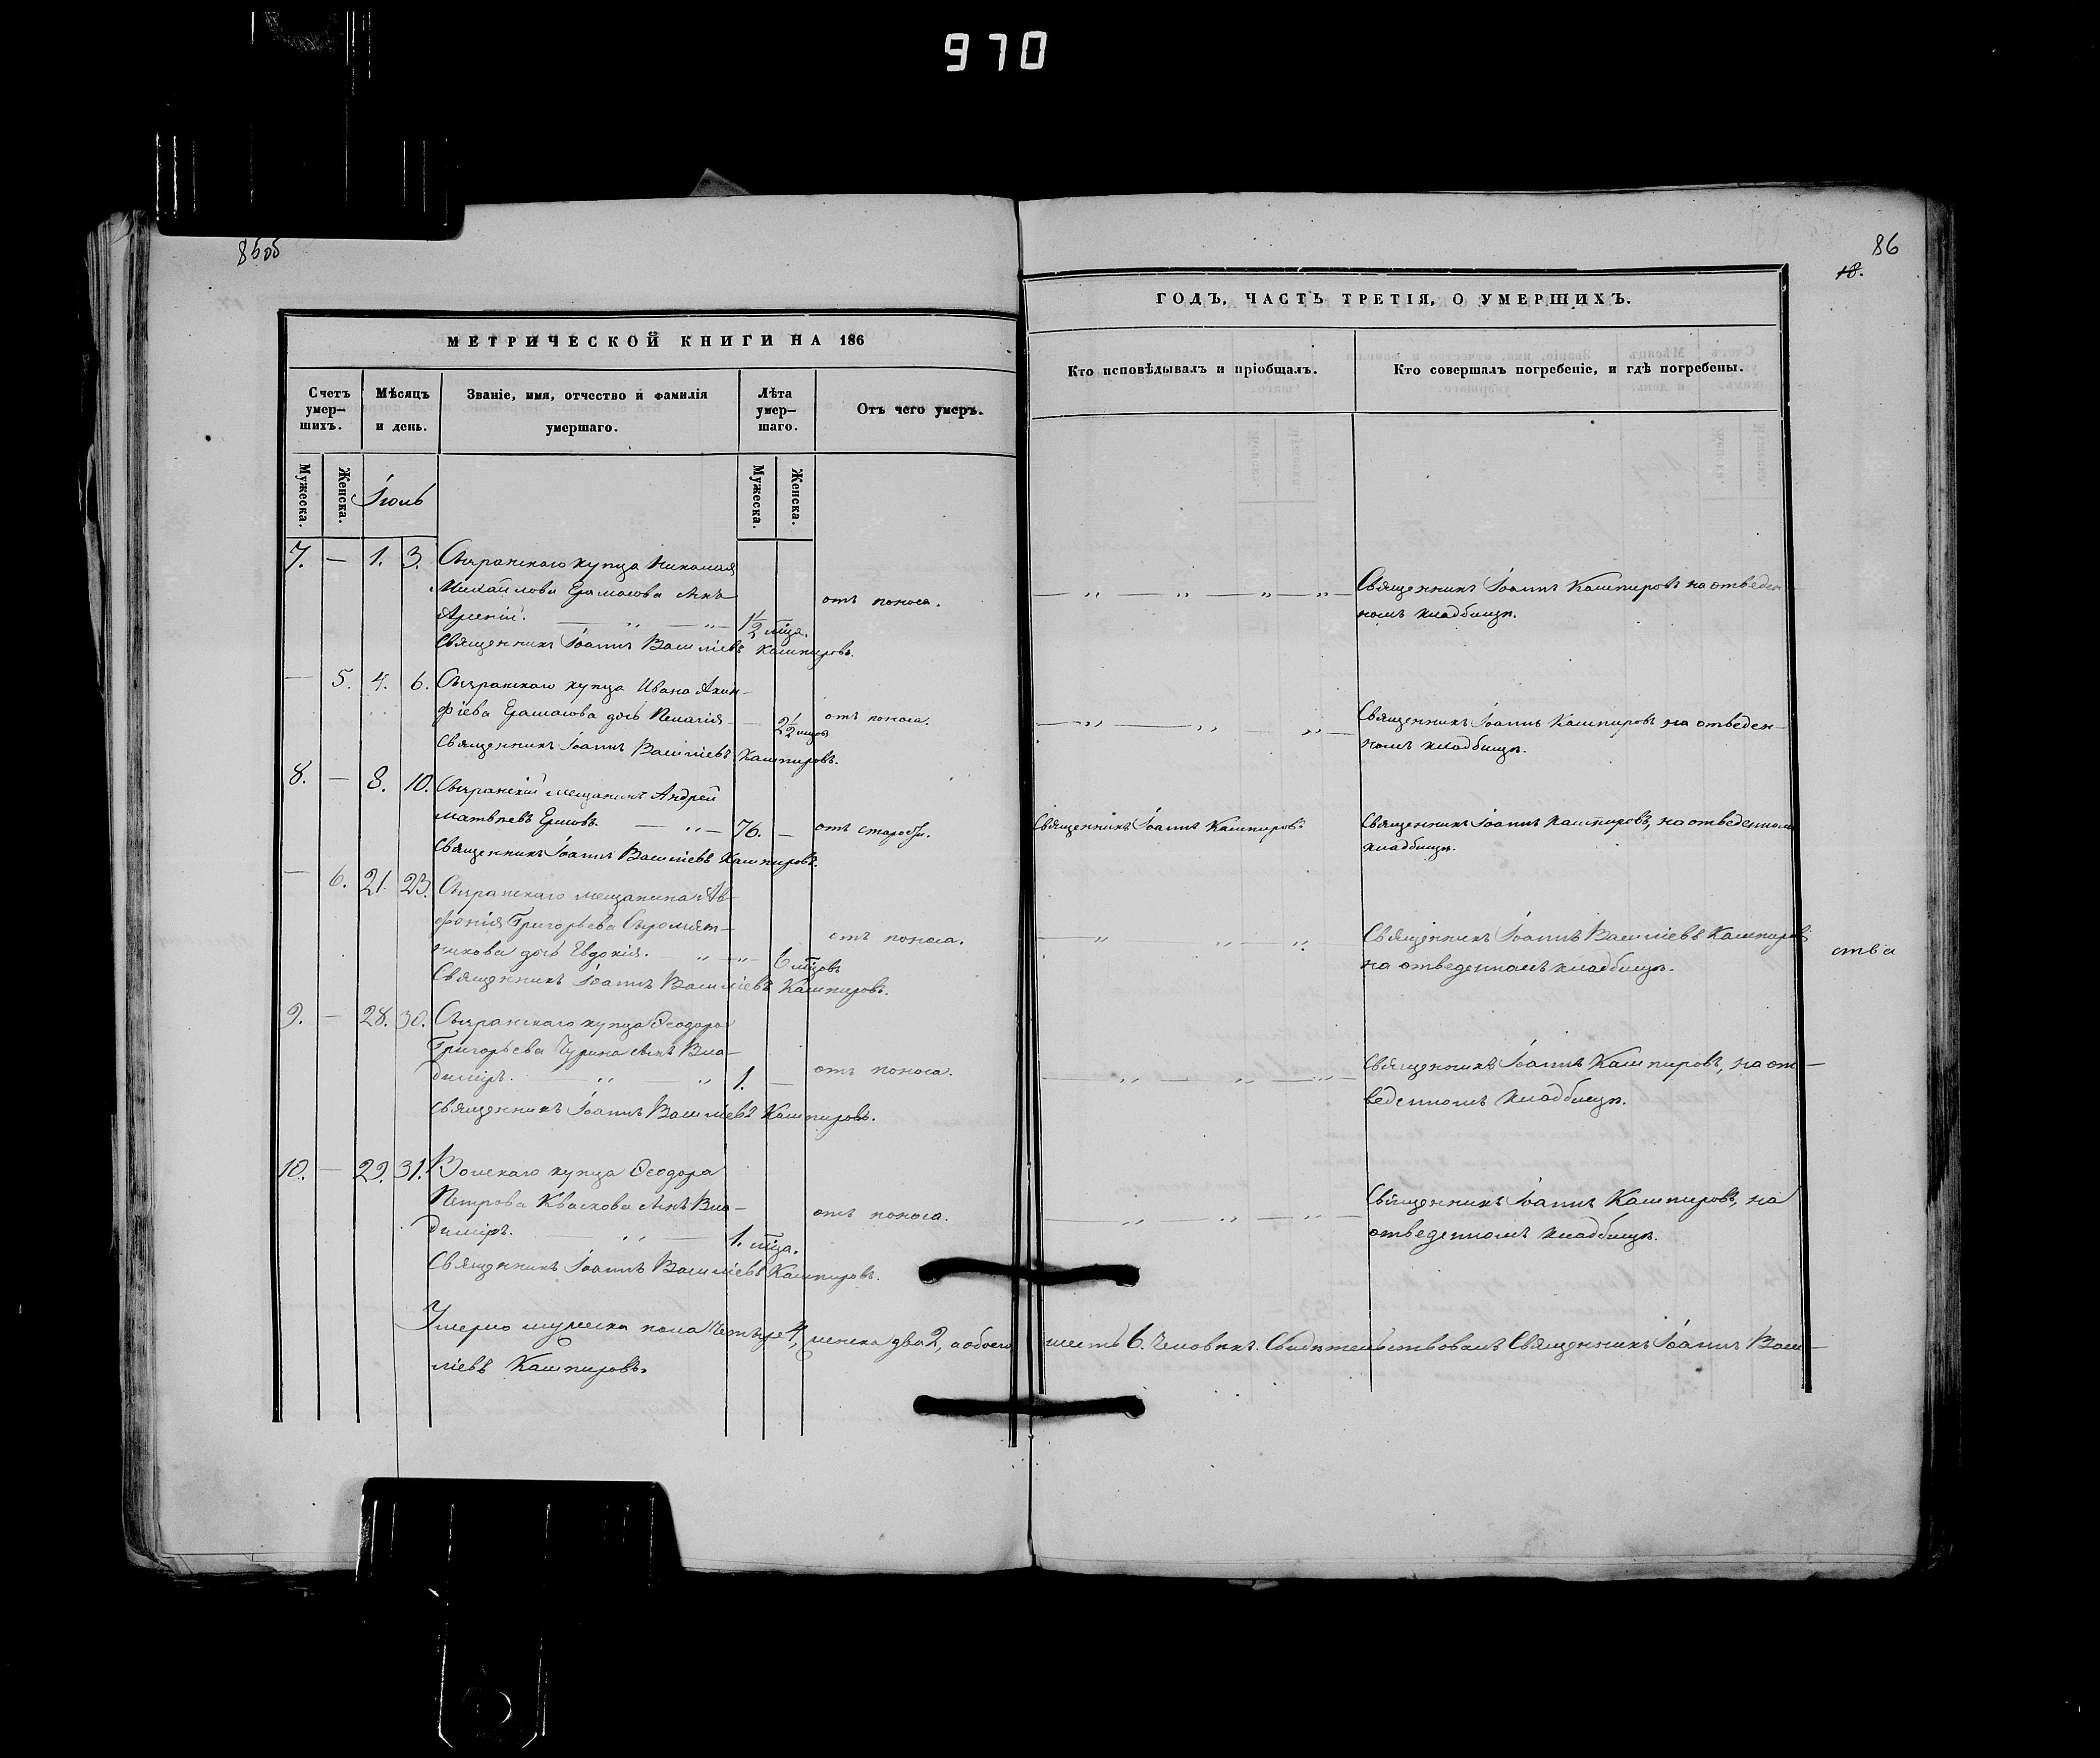 970
85об
86
18.
МЕТРИЧЕСКОЙ КНИГИ НА 186
ГОДЪ, ЧАСТЬ ТРЕТІЯ, О УМЕРШИХЪ.
Счетъ умер-
шихъ.
Мѣсяцъ
и день.
Званіе, имя, отчество и фамилія
умершаго.
Лѣта
умер-
шаго.
Отъ чего умеръ.
Кто исповѣдывалъ и пріобщалъ.
Кто совершалъ погребеніе, и гдѣ погребены.
Мужеска.
Женска.
Іюль
Мужеска.
Женска.
7. — 1. 3. Сызранскаго купца Николая
Михайлова Ерамасова сынъ
Арсеній. — „ — „ — 1½ мѣца. отъ поноса.
— „ — „ — „ — „ — Священникъ Іоаннъ Кашпировъ на отведен-
номъ кладбищѣ.
Священникъ Іоаннъ Василіевъ Кашпировъ.
— 5. 4. 6. Сызранскаго купца Ивана Акин-
фіева Ерамасова дочь Пелагія — 2½ мцовъ отъ поноса.
— „ — „ — „ — Священникъ Іоаннъ Кашпировъ на отведен-
номъ кладбищѣ.
Священникъ Іоаннъ Василіевъ Кашпировъ.
8. — 8. 10. Сызранскій мещанинъ Андрей
Матвѣевъ Ершовъ. — „ — 76. — отъ старости.
Священникъ Іоаннъ Кашпировъ
Священникъ Іоаннъ Кашпировъ, на отведенномъ
кладбищѣ.
Священникъ Іоаннъ Василіевъ Кашпировъ.
— 6. 21. 23. Сызранскаго мещанина Ав-
фонія Григорьева Сыромят-
никова дочь Евдокія. — „ — „ — 6 мѣцовъ отъ поноса.
— „ „ — „ Священникъ Іоаннъ Василіевъ Кашпировъ
на отведенномъ кладбищѣ.
ства
Священникъ Іоаннъ Василіевъ Кашпировъ.
9. — 28. 30. Сызранскаго купца Ѳеодора
Григорьева Чурина сынъ Вла-
диміръ. — „ — „ 1. — отъ поноса.
— „ — „ — „ — Священникъ Іоаннъ Кашпировъ, на от-
веденномъ кладбищѣ.
Священникъ Іоаннъ Василіевъ Кашпировъ.
10. — 29. 31. Вольскаго купца Ѳеодора
Петрова Кваскова сынъ Вла-
диміръ. — „ — 1. мѣца. отъ поноса.
— „ — „ — „ — Священникъ Іоаннъ Кашпировъ, на
отведенномъ кладбищѣ.
Священникъ Іоаннъ Василіевъ Кашпировъ.
Умерло мужеска пола четыре 4, женска два 2, а обоего шесть 6. Человѣкъ. Свидѣтельствовалъ Священникъ Іоаннъ Васи-
ліевъ Кашпировъ.